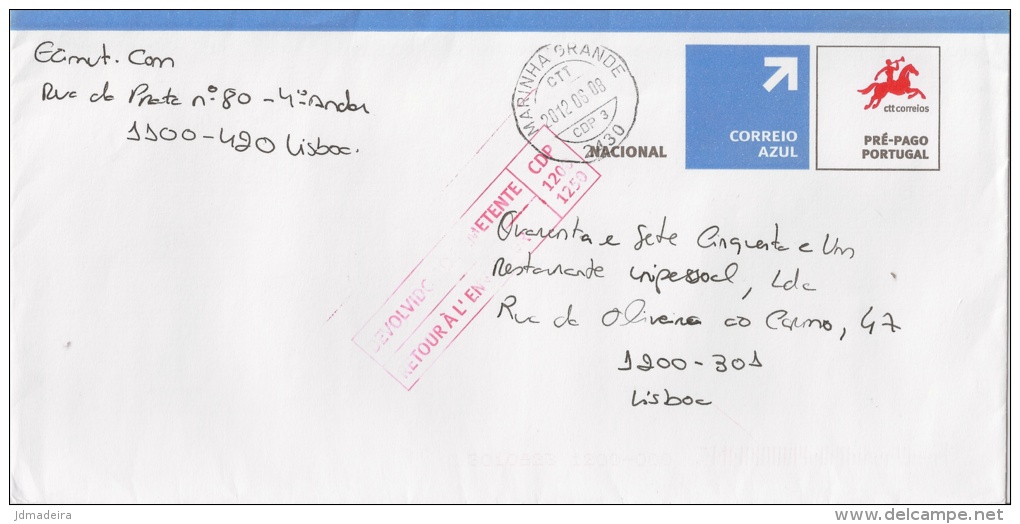 Rua da Prata nº 80 - 4º Andar
1100-420 Lisboa.
MARINHA GRANDE
CTT
2012.06.08
CDP 3
2430
NACIONAL
CORREIO
AZUL
ctt correios
PRÉ-PAGO
PORTUGAL
DEVOLVIDO METENTE
RETOUR À L'EN
CDP
1200
1250
Quarenta e Sete Cinquenta e Um
Restaurante Unipessoal, Lda
Rua da Oliveira ao Carmo, 47
1200-301
Lisboa
jdmadeira
www.delcampe.net